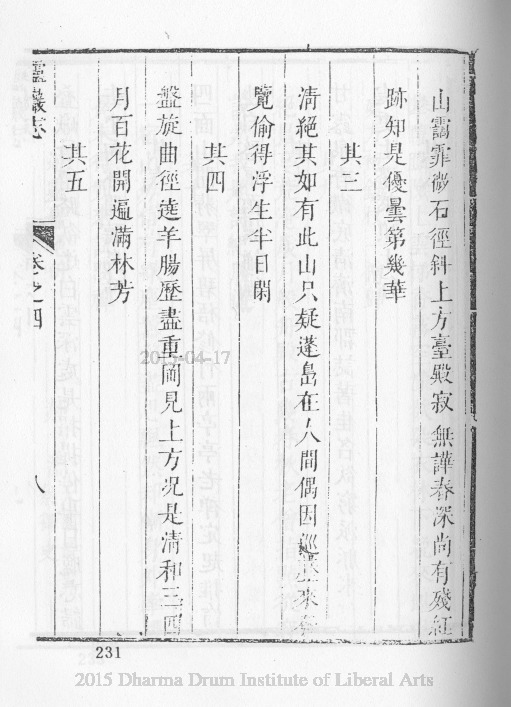 山靄霏微石徑斜上方臺殿寂無譁春深尚有殘紅
跡知是優曇第幾華
其三
清絕其如有此山只疑蓬島在人間偶因來
覽偷得浮生半日閑
其四
盤旋曲徑遶羊腸歷盡重岡見上方况是清和三四
月百花開遍滿林芳
其五
靈巖志
卷之四
八
2015-04-17
231
2015 Dharma Drum Institute of Liberal Arts